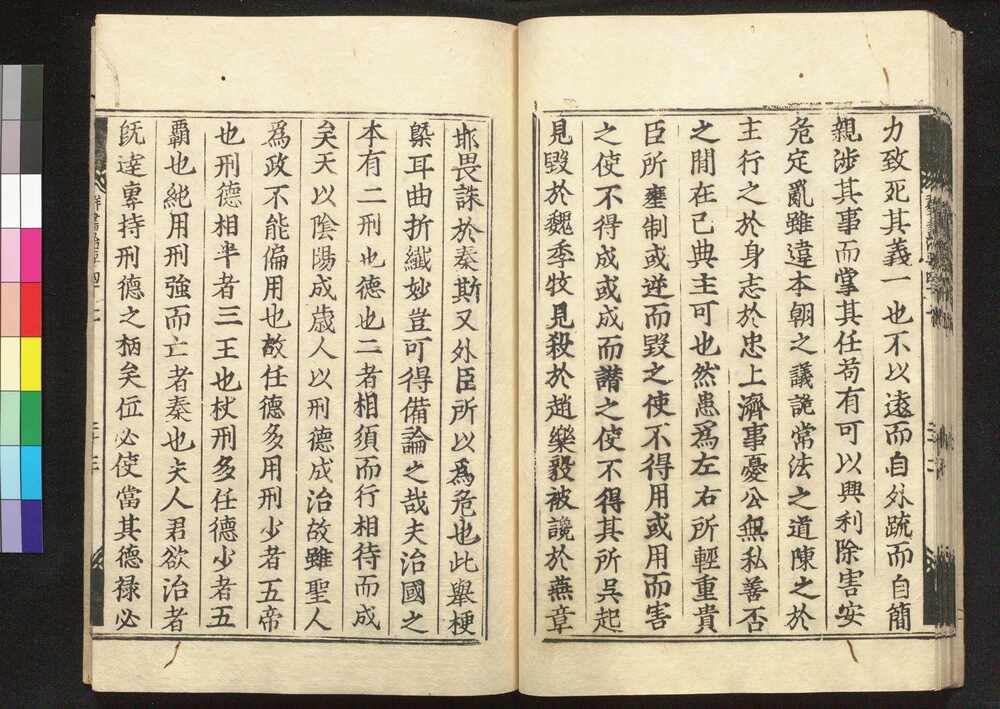 力致死其義一也不以遠而自外疏而自簡
親涉其事而掌其任苟有可以興利除害安
危定亂雖違本朝之議詭常法之道陳之於
主行之於身志於忠上濟事憂公無私善否
之間在己典主可也然患爲左右所輕重貴
臣所壅制或逆而毀之使不得用或用而害
之使不得成或成而譖之使不得其所吳起
見毀於魏李牧見殺於趙樂毅被讒於燕章
邯畏誅於秦斯又外臣所以爲危也此舉梗
槩耳曲折纖妙豈可得備論之哉夫治國之
本有二刑也德也二者相須而行相待而成
矣天以陰陽成歲人以刑德成治故雖聖人
爲政不能偏用也故任德多用刑少者五帝
也刑德相半者三王也杖刑多任德少者五
霸也純用刑強而亡者秦也夫人君欲治者
既達專持刑德之柄矣位必使當其德祿必
群書治要四十七